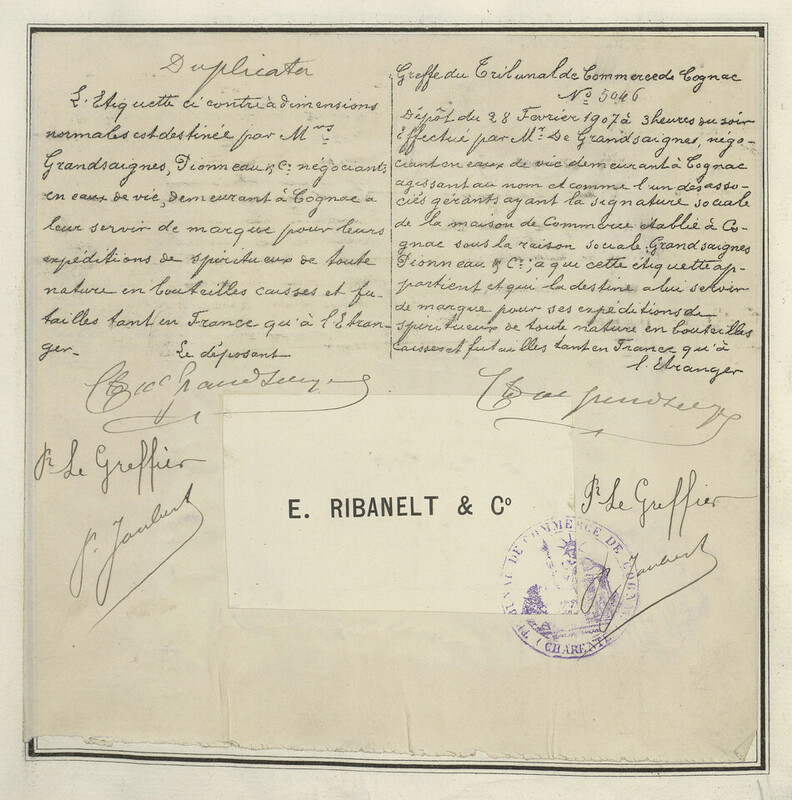 Duplicata
L'Etiquette ci contre à dimensions
normales est destinée par Mrs
Grandsaignes, Pionneau & Cie négociants
en eaux de vie, demeurant à Cognac a
leur servir de marque pour leurs
expéditions de spiritueux de toute
nature en bouteilles caisses et fu-
tailles tant en France qu'à l'Etran-
ger-
Le déposant
Pr Le Greffier
P. Joubert
Greffe du Tribunal de Commerce de Cognac
No 5046
Dépôt du 28 Fevrier 1907 à 3 heures du soir
Effectué par Mr De Grandsaignes, négo-
ciant en eaux de vie demeurant à Cognac
agissant au nom et comme l'un des asso-
ciés gérants ayant la signature sociale
de la maison de Commerce établie à Co-
gnac sous la raison sociale: Grandsaignes
Pionneau & Cie; à qui cette étiquette ap-
partient et qui la destine a lui servir
de marque pour ses expéditions de
spiritueux de toute nature en bouteilles
caisses et futailles tant en France qu'à
l'Etranger
Pr Le Greffier
P. Joubert
E. RIBANELT & Co
TRIBUNAL DE COMMERCE DE COGNAC
(CHARENTE)